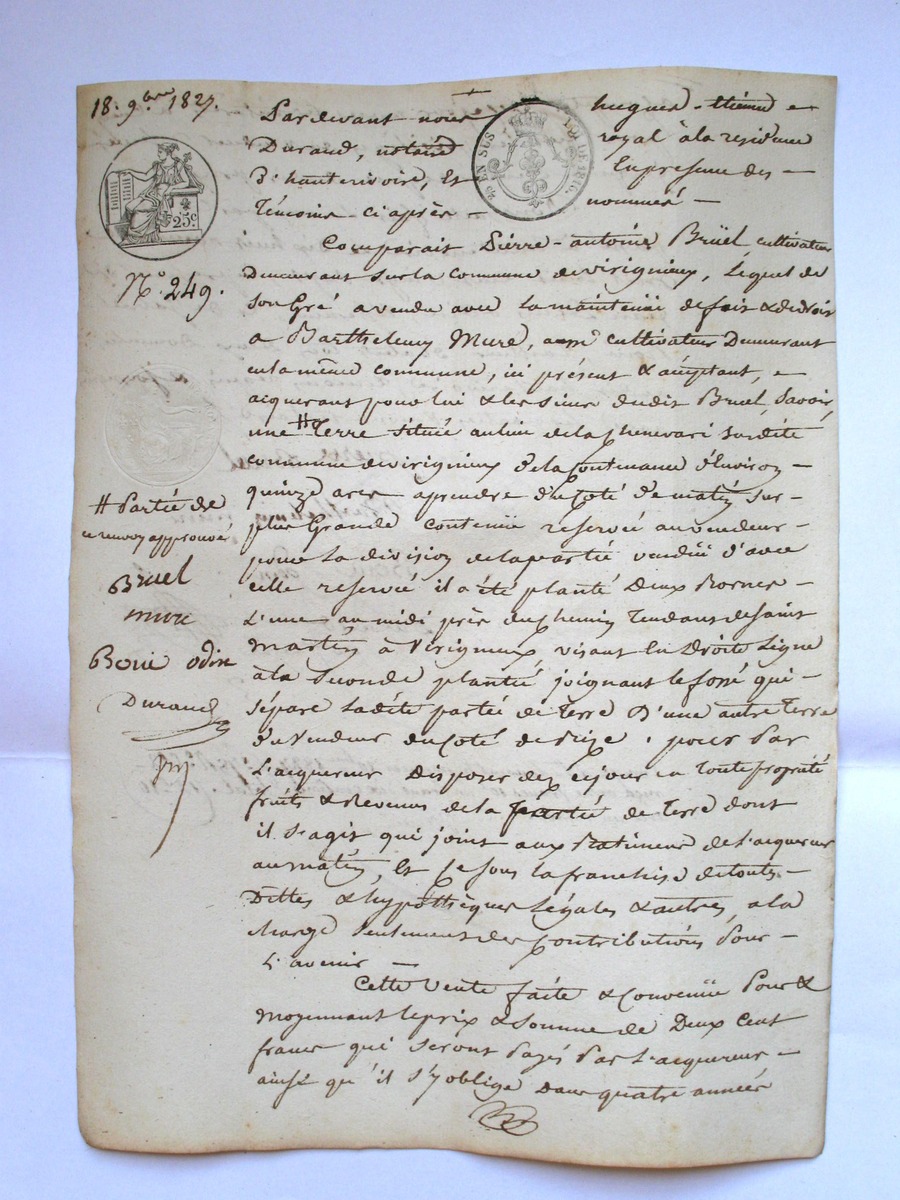 18. 9.bre 1827.
Pardevant nous hugues-étienne
Durand, notaire royal à la residence
D'hauterivoire, Et En presence des
Témoins ci après nommés
25c.
N.o 249.
Comparait Pierre-antoine Brüel, cultivateur
Demeurant sur la Commune de virignieux, Lequel de
son Gré a vendu avec La maintenüe de fait & de droit
a Barthelemy Mure, cultivateur Demeurant
en la même commune, ici présent & acceptant,
acquerant pour lui & les siens dudit Bruel, Savoir,
une # Terre située au lieu de la Chenevari sur dite
commune de virignieux De la Contenance d'Environ
quinze ares aprendre du Coté De matin sur
plus Grande contenüe reservée au vendeur
pour La division de la partie vendüe d'avec
celle reservée il a été planté Deux Bornes
L'une au midi près du Chemin Tendant de saint
martin à Virignieux visant En Droite Ligne
à la Seconde plantée joignant le fossé qui
sépare Ladite partie de Terre D'une autre Terre
du Vendeur du Coté de Bize, pour Par
L'acquereur Disposer dez ce jour en Toute propriété
fruits & Revenus de la partie de Terre dont
il s'agit qui joint aux de L'acquereur
au matin, Et Ce sous la franchise de toutes
Dettes & hypothèques Légales & autres, a la
charge seulement des Contributions Pour
L'avenir
Cette Vente faite & Convenüe Pour &
moyennant le prix & Somme de Deux Cent
francs qui seront Payés Par L'acquereur
ainsi qu'il s'y oblige Dans quatre années
# Partie de
ce renvoy approuvé
Bruel
mure
Boué odin
Durand